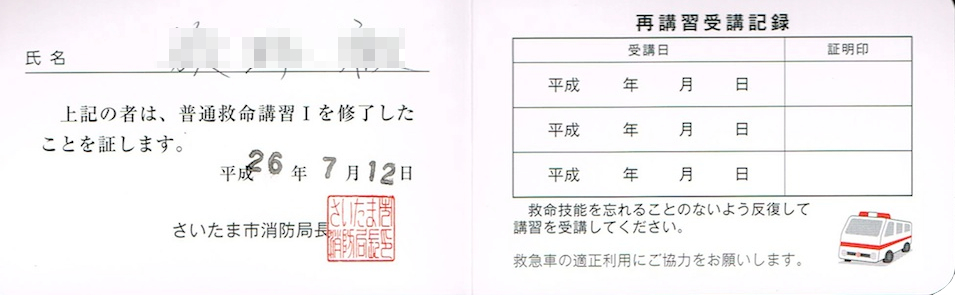 氏名
上記の者は、普通救命講習Ⅰを修了した
ことを証します。
平成26年7月12日
さいたま市消防局長
さいたま市
消防局長印
再講習受講記録
受講日 証明印
平成 年 月 日
平成 年 月 日
平成 年 月 日
救命技能を忘れることのないよう反復して
講習を受講してください。
救急車の適正利用にご協力をお願いします。